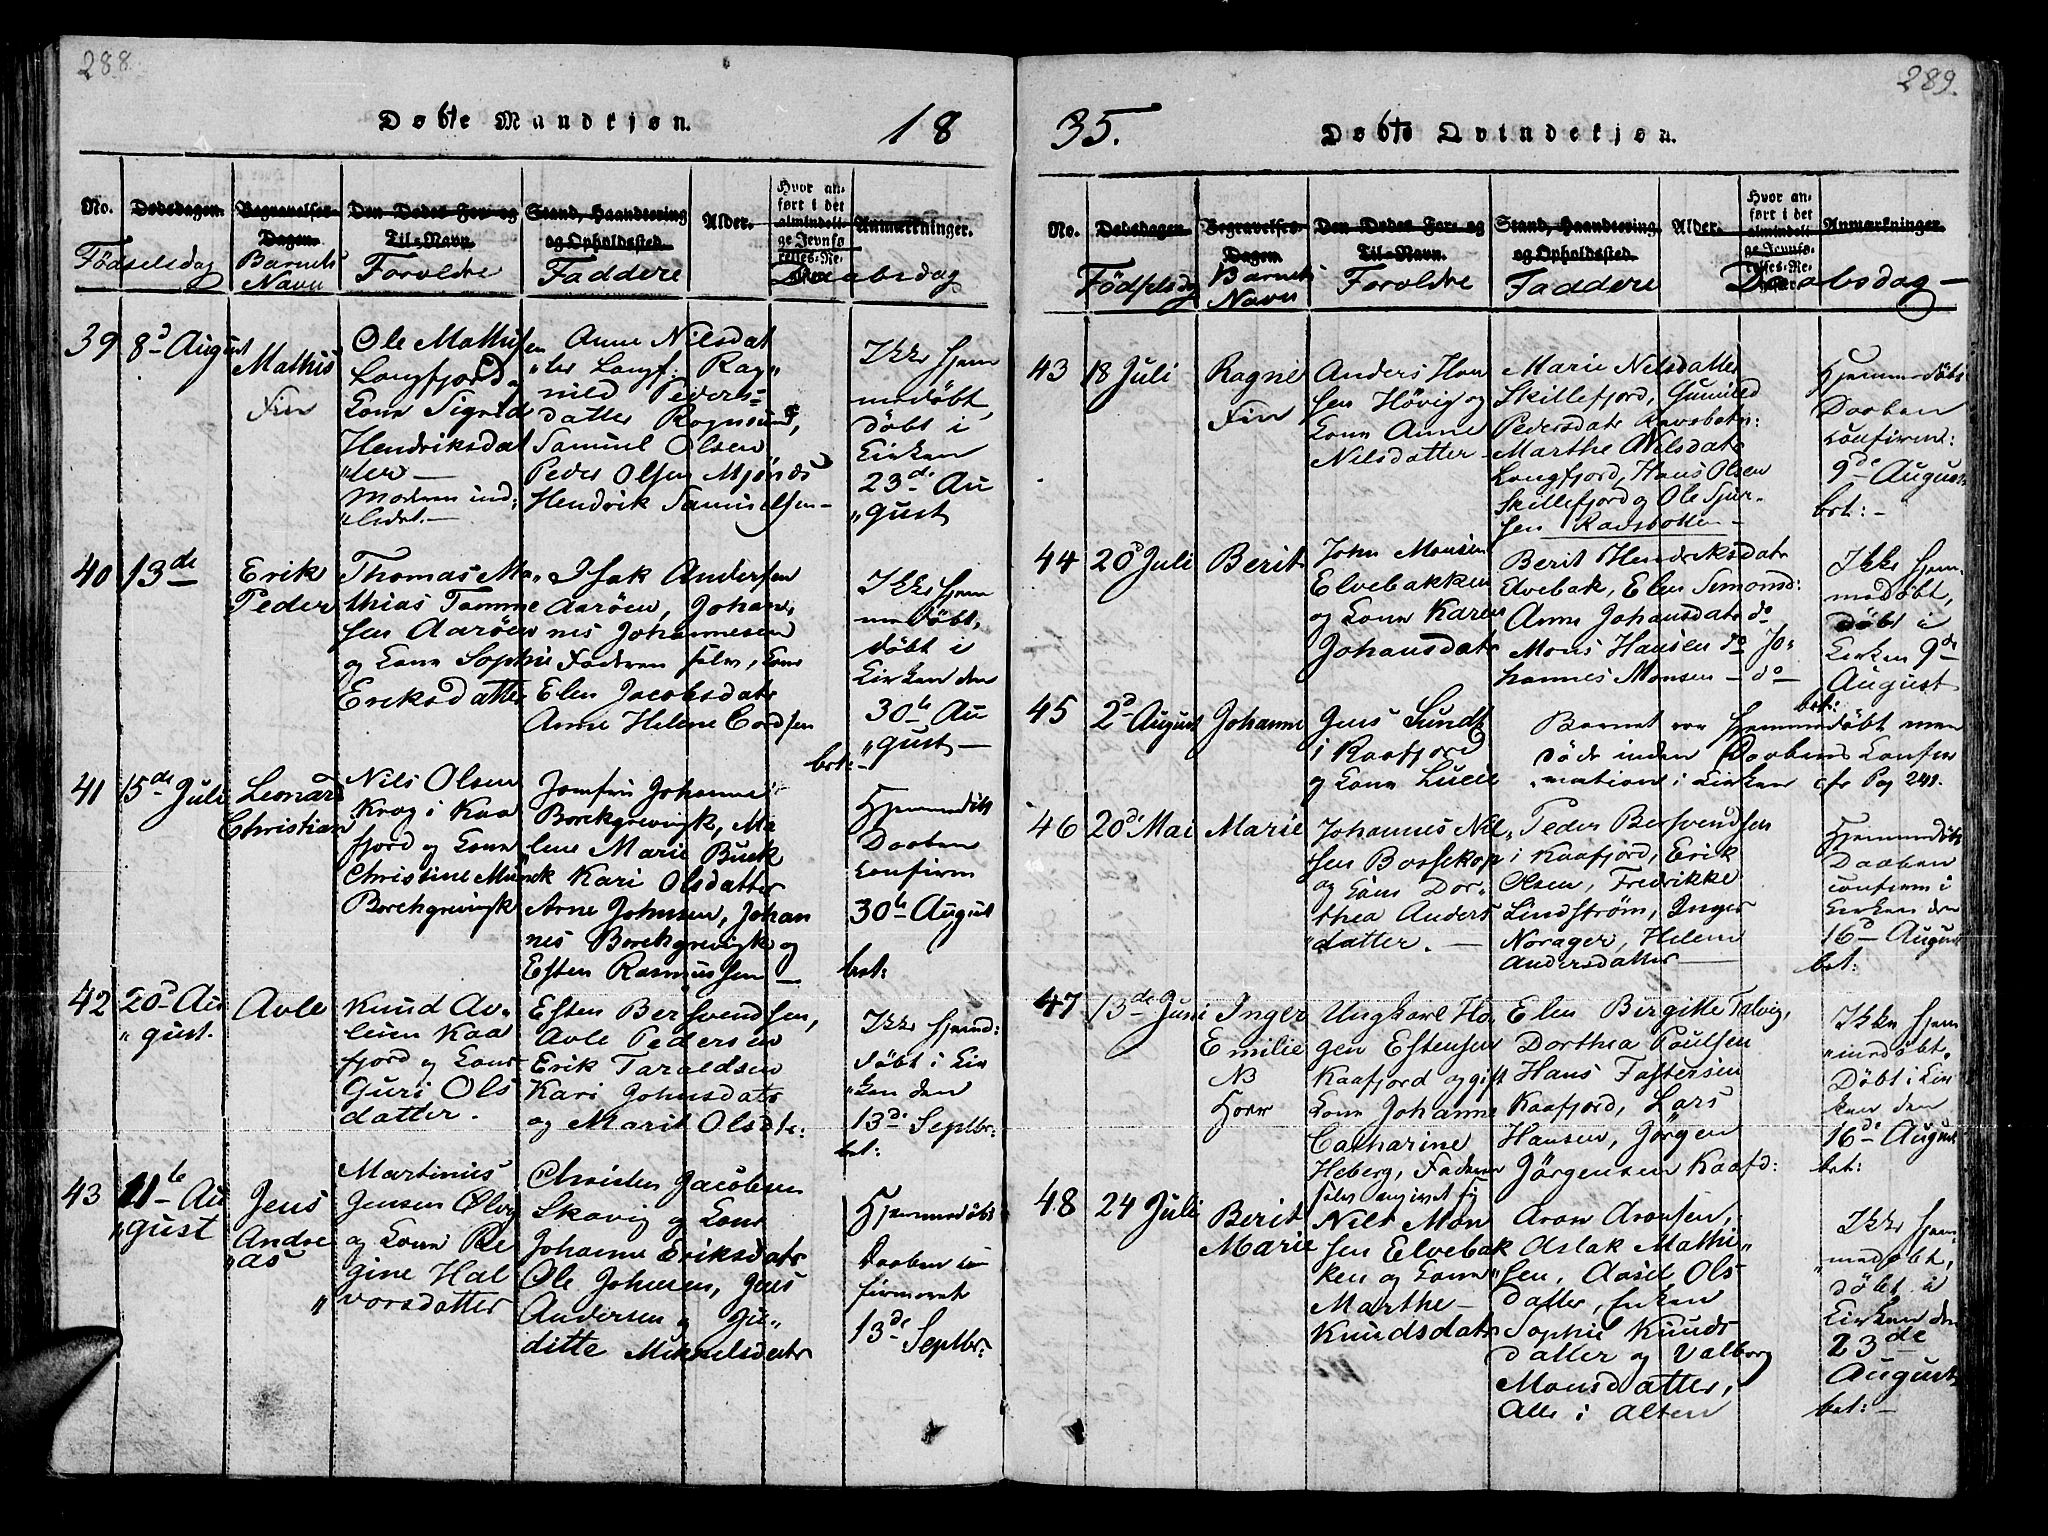 288.
Døbte Mandkjøn.
18
No.
Dødsdagen.
Begravelses-
Dagen.
Den Dødes For- og
Til-Navn.
Stand, Haandtering
og Opholdssted.
Alder.
Hvor an-
ført i det
almindeli-
ge Jevnfø-
relses-Re-
Anmærkninger.
Fødselsdag
Barnets
Navn
Foreldre
Faddere
Daabsdag
39
8d August
Mathis
Fin
Ole Mathisen
Langfjord og
Kone Sigrid
Hendriksdat
"ter —
Moderen ind:
"ledet. —
Anne Nilsdat
"ter Langf: Rag"
nild Peders=
datter Rognsund,
Samuel Olsen
Peder Olsen Mjønds
Hendrik Samuelsen —
Ikke hjem
medøbt,
døbt i
Kirken
23de Au
"gust
40
13de
Erik
Peder
Thomas Ma"
thias Tomme
sen Aarøen
og Kone Sophie
Eriksdatter
Isak Andersen
Aarøen, Johan"
nes Johannesen
Faderen selv, Kone
Elen Jacobsdatr
Anne Helene Cordsen
Ikke hjem
medøbt,
døbt i
Kirken den
30te Au
"gust —
bet: —
41
15de Juli
Leonard
Christian
Nils Olsen
Krog i Kaa
fjord og Kone
Christine Munk
Borchgrevingk
Jomfru Johanne
Borchgrevingk, Ma
lene Marie Buck
Kari Olsdatter
Arne Johnsen, Johan
nes Borchgrevingk og
Esten Rasmussen —
Hjemmedøbt
Daaben
Confirm
30te August
bet:
42
20d Au
"gust.
Avle
Knud Av"
lesen Kaa
fjord og Kone
Guri Ols
datter.
Esten Bersvendsen,
Avle Pedersen
Erik Taraldsen
Kari Johnsdatr
og Marit Olsdtr:
Ikke hjemd:
døbt i Kir
"ken den
13de Septbr:
bet:
43
11te Au
"gust
Jens
Andre
"as
Martinus
Jensen Ølvig
og Kone Re
gine Hal
"vorsdatter
Christen Jacobsen
Skavig og Kone
Johanne Eriksdatr
Ole Johnsen, Jens
Andersen og Ju"
ditte Mikkelsdatr
Hjemmedøbt
Daaben con
firmeret
13de Septbr:
289.
35.
Døbte Qvindekjøn.
No.
Dødsdagen.
Begravelses-
Dagen.
Den Dødes For- og
Til-Navn.
Stand, Haandtering
og Opholdssted.
Alder.
Hvor an-
ført i det
almindeli-
ge Jevnfø-
relses-Re-
Anmærkninger.
Fødselsdag
Barnets
Navn
Foreldre
Faddere
Daabsdag —
43
18 Juli
Ragne
Fin
Anders Han
sen Høvig og
Kone Anne
Nilsdatter —
Marie Nilsdatter
Skillefjord, Gunild
Pedersdatr Ravsbotn:
Marthe Nilsdatr
Langfjord, Hans Olsen
Skillefjord og Ole Sjur-
sen Ravsbotten —
Hjemmedøbt
Daaben
confirm:
9de August
bet: —
44
20d Juli
Berit
John Monsen
Elvebakken
og Kone Karen
Johansdatr
Berit Hendriksdatr
Elvebak, Elen Simonsd:
Anne Johansdatr do
Mons Hansen do Jo"
hannes Monsen — do —
Ikke hjem
medøbt,
døbt i
Kirken 9de
August
bet:
45
2d August
Johanne
Jens Sundt
i Kaafjord
og Kone Lucie
Barnet var hjemmedøbt men
døde inden Daabens Confir
"mation i Kirken cfr Pag 241.
46
20d Mai
Marie
Johannes Nil"
sen Bossekop
og Kone Dor"
thea Anders
"datter. —
Peder Bersvendsen
i Kaafjord, Erik
Olsen, Fredrikke
Lindstrøm, Inger
Norager, Helene
Andersdatter —
Hjemmedøbt
Daaben
confirm i
Kirken den
16d August
bet:
47
13de Juni
Inger
Emilie
NB
Horr
Ungkarl Ha
gen Estensen
Kaafjord og gift
Kone Johanne
Catharine
Heberg, Faderen
selv angivet sig
Elen Birgitte Talvig,
Dorthea Poulsen
Hans Fastersen
Kaafjord, Lars
Hansen, Jørgen
Jørgensen Kaafd:
Ikke hjem
"medøbt.
Døbt i Kir
ken den
16de August
bet:
48
24 Juli
Berit
Marie
Nils Mon
sen Elvebak
ken og Kone
Marthe —
Knudsdatr
Aron Aronsen,
Aslak Mathi"
"sen, Aasel Ols
datter, Enken
Sophie Knuds
datter og Valborg
Monsdatter,
Alle i Alten
Ikke hjem
"medøbt,
døbt i
Kirken den
23de
August
bet: —